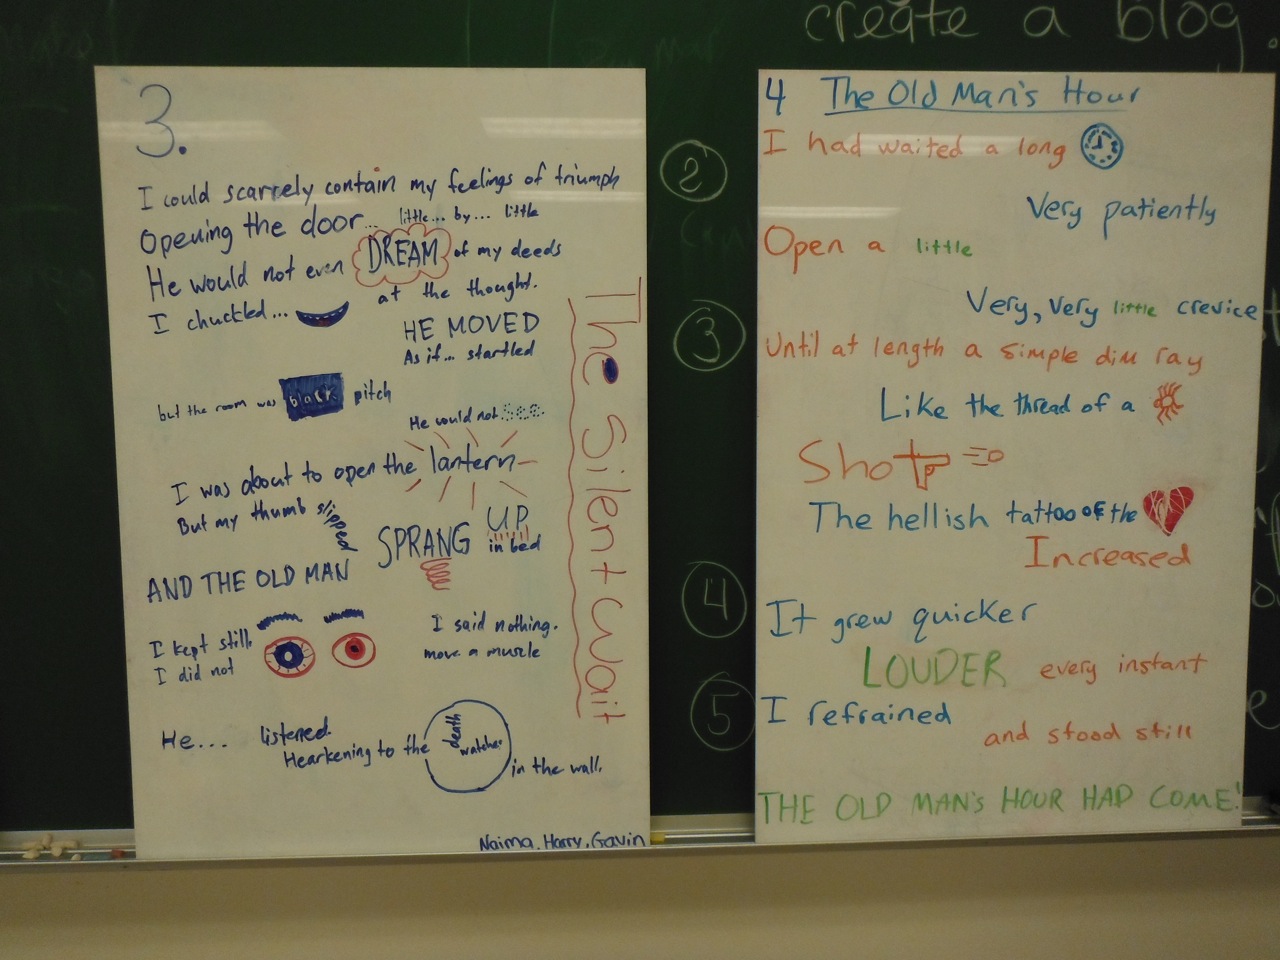 create a blog
2
3
4
5
3.
I could scarcely contain my feelings of triumph
Opening the door... little... by... little
He would not even DREAM of my deeds
at the thought.
I chuckled...
HE MOVED
As if... startled
but the room was black pitch
He would not see.
I was about to open the lantern
But my thumb slipped
AND THE OLD MAN SPRANG UP
in bed
I kept still. I said nothing.
I did not move a muscle
He... listened.
Hearkening to the death
watches
in the wall.
Naima, Harry, Gavin
The Silent Wait
4 The Old Man's Hour
I had waited a long
Very patiently
Open a little
Very, very little crevice
Until at length a simple dim ray
Like the thread of a
Shot
The hellish tattoo of the
Increased
It grew quicker
LOUDER every instant
I refrained
and stood still
THE OLD MAN'S HOUR HAD COME!